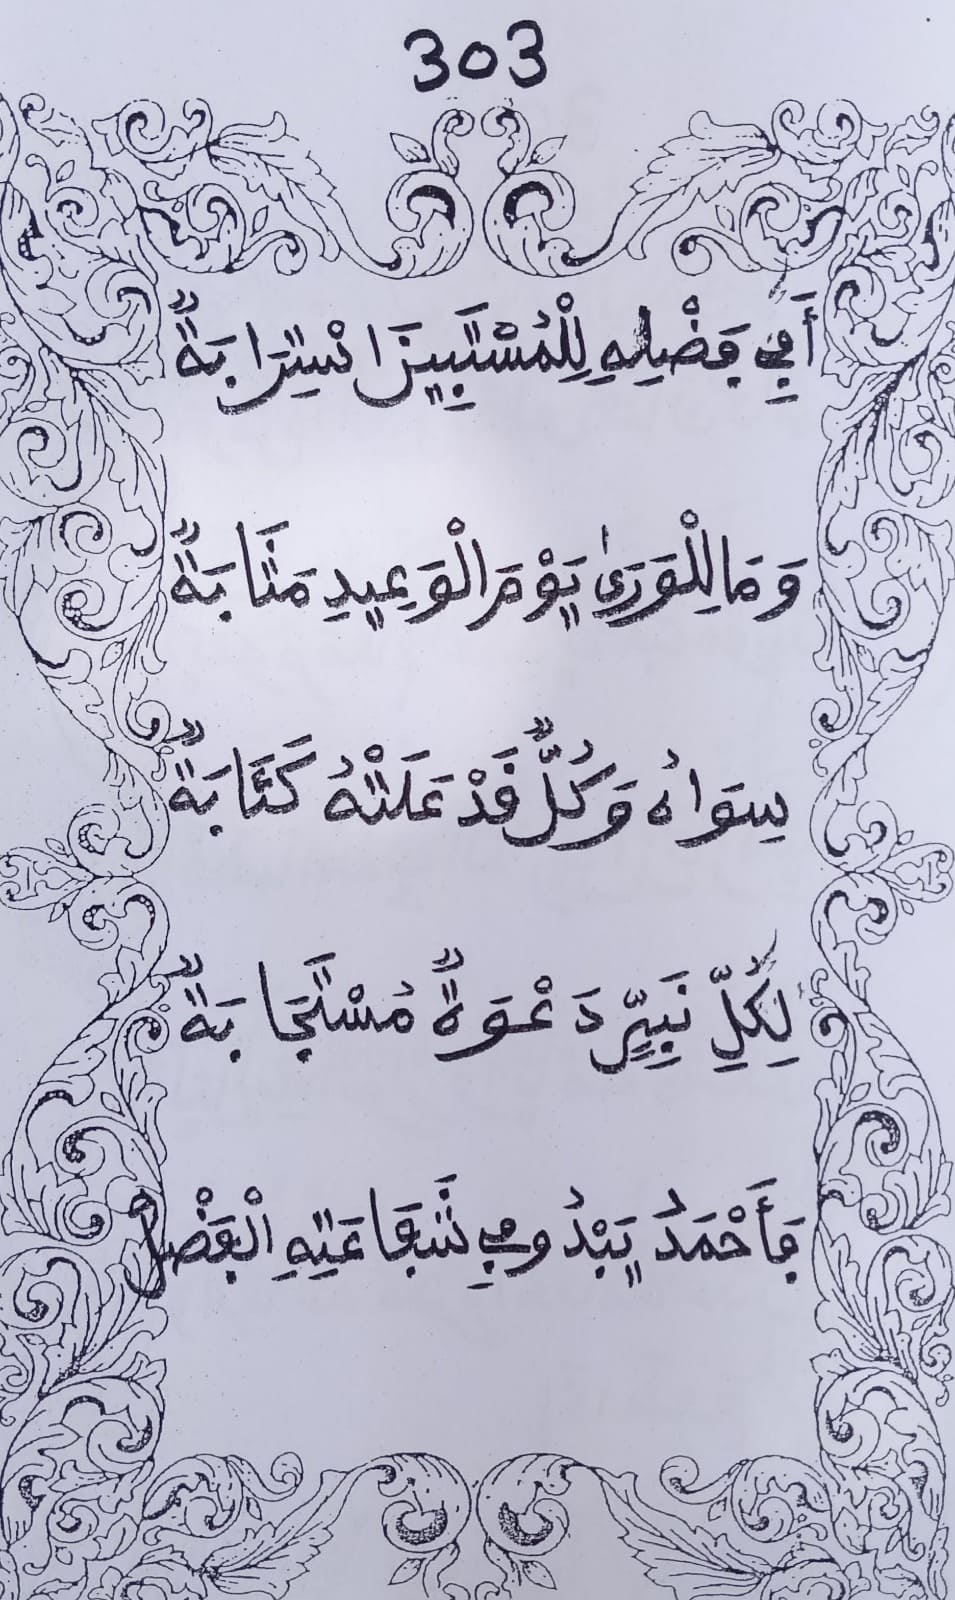 303
أَفِي فَضْلِهِ لِلْمُسْتَبِينِ اسْتِرَابَةٌ
وَمَا لِلْوَرَىٰ يَوْمَ الْوَعِيدِ مَثَابَةٌ
سِوَاهُ وَكُلٌّ قَدْ عَلَتْهُ كَئَابَةٌ
لِكُلِّ نَبِيٍّ دَعْوَةٌ مُسْتَجَابَةٌ
فَأَحْمَدُ يَبْدُو فِي شَفَاعَتِهِ الْفَضْلُ